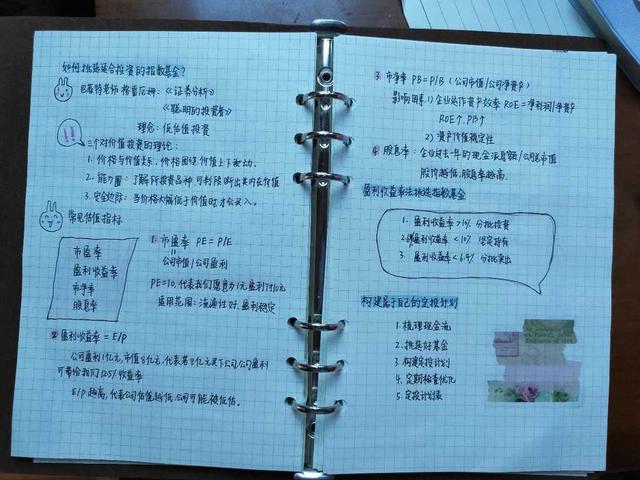 如何挑选适合投资的指数基金？
巴菲特老师格雷厄姆：《证券分析》
《聪明的投资者》
理念：低估值投资
!!
三个对价值投资的理论：
1. 价格与价值关系，价格围绕价值上下波动。
2. 能力圈：了解所投资品种，可判断出其内在价值
3. 安全边际：当价格大幅低于价值时才会买入。
常见估值指标
市盈率
盈利收益率
市净率
股息率
1. 市盈率 PE = P/E
公司市值/公司盈利
PE=10，代表我们愿意为1元盈利付10元
适用范围：流通性好、盈利稳定
② 盈利收益率 = E/P
公司盈利1亿元，市值8亿元，代表若8亿元买下公司，公司盈利
可带给我们12.5%收益率
E/P越高，代表公司估值越低，公司可能被低估。
③ 市净率 PB = P/B（公司市值/公司净资产）
影响因素：1）企业运作资产效率 ROE=净利润/净资产
ROE↑，PB↑
2）资产价值稳定性
④ 股息率：企业过去一年的现金派息额/公司总市值
股价越低，股息率越高.
盈利收益率法挑选指数基金
1. 盈利收益率>10% 分批投资
2. 盈利收益率<10% 坚定持有
3. 盈利收益率<6.4% 分批卖出
构建属于自己的定投计划
1. 梳理现金流
2. 挑选好基金
3. 构建定投计划
4. 定期检查优化
5. 定投计划表